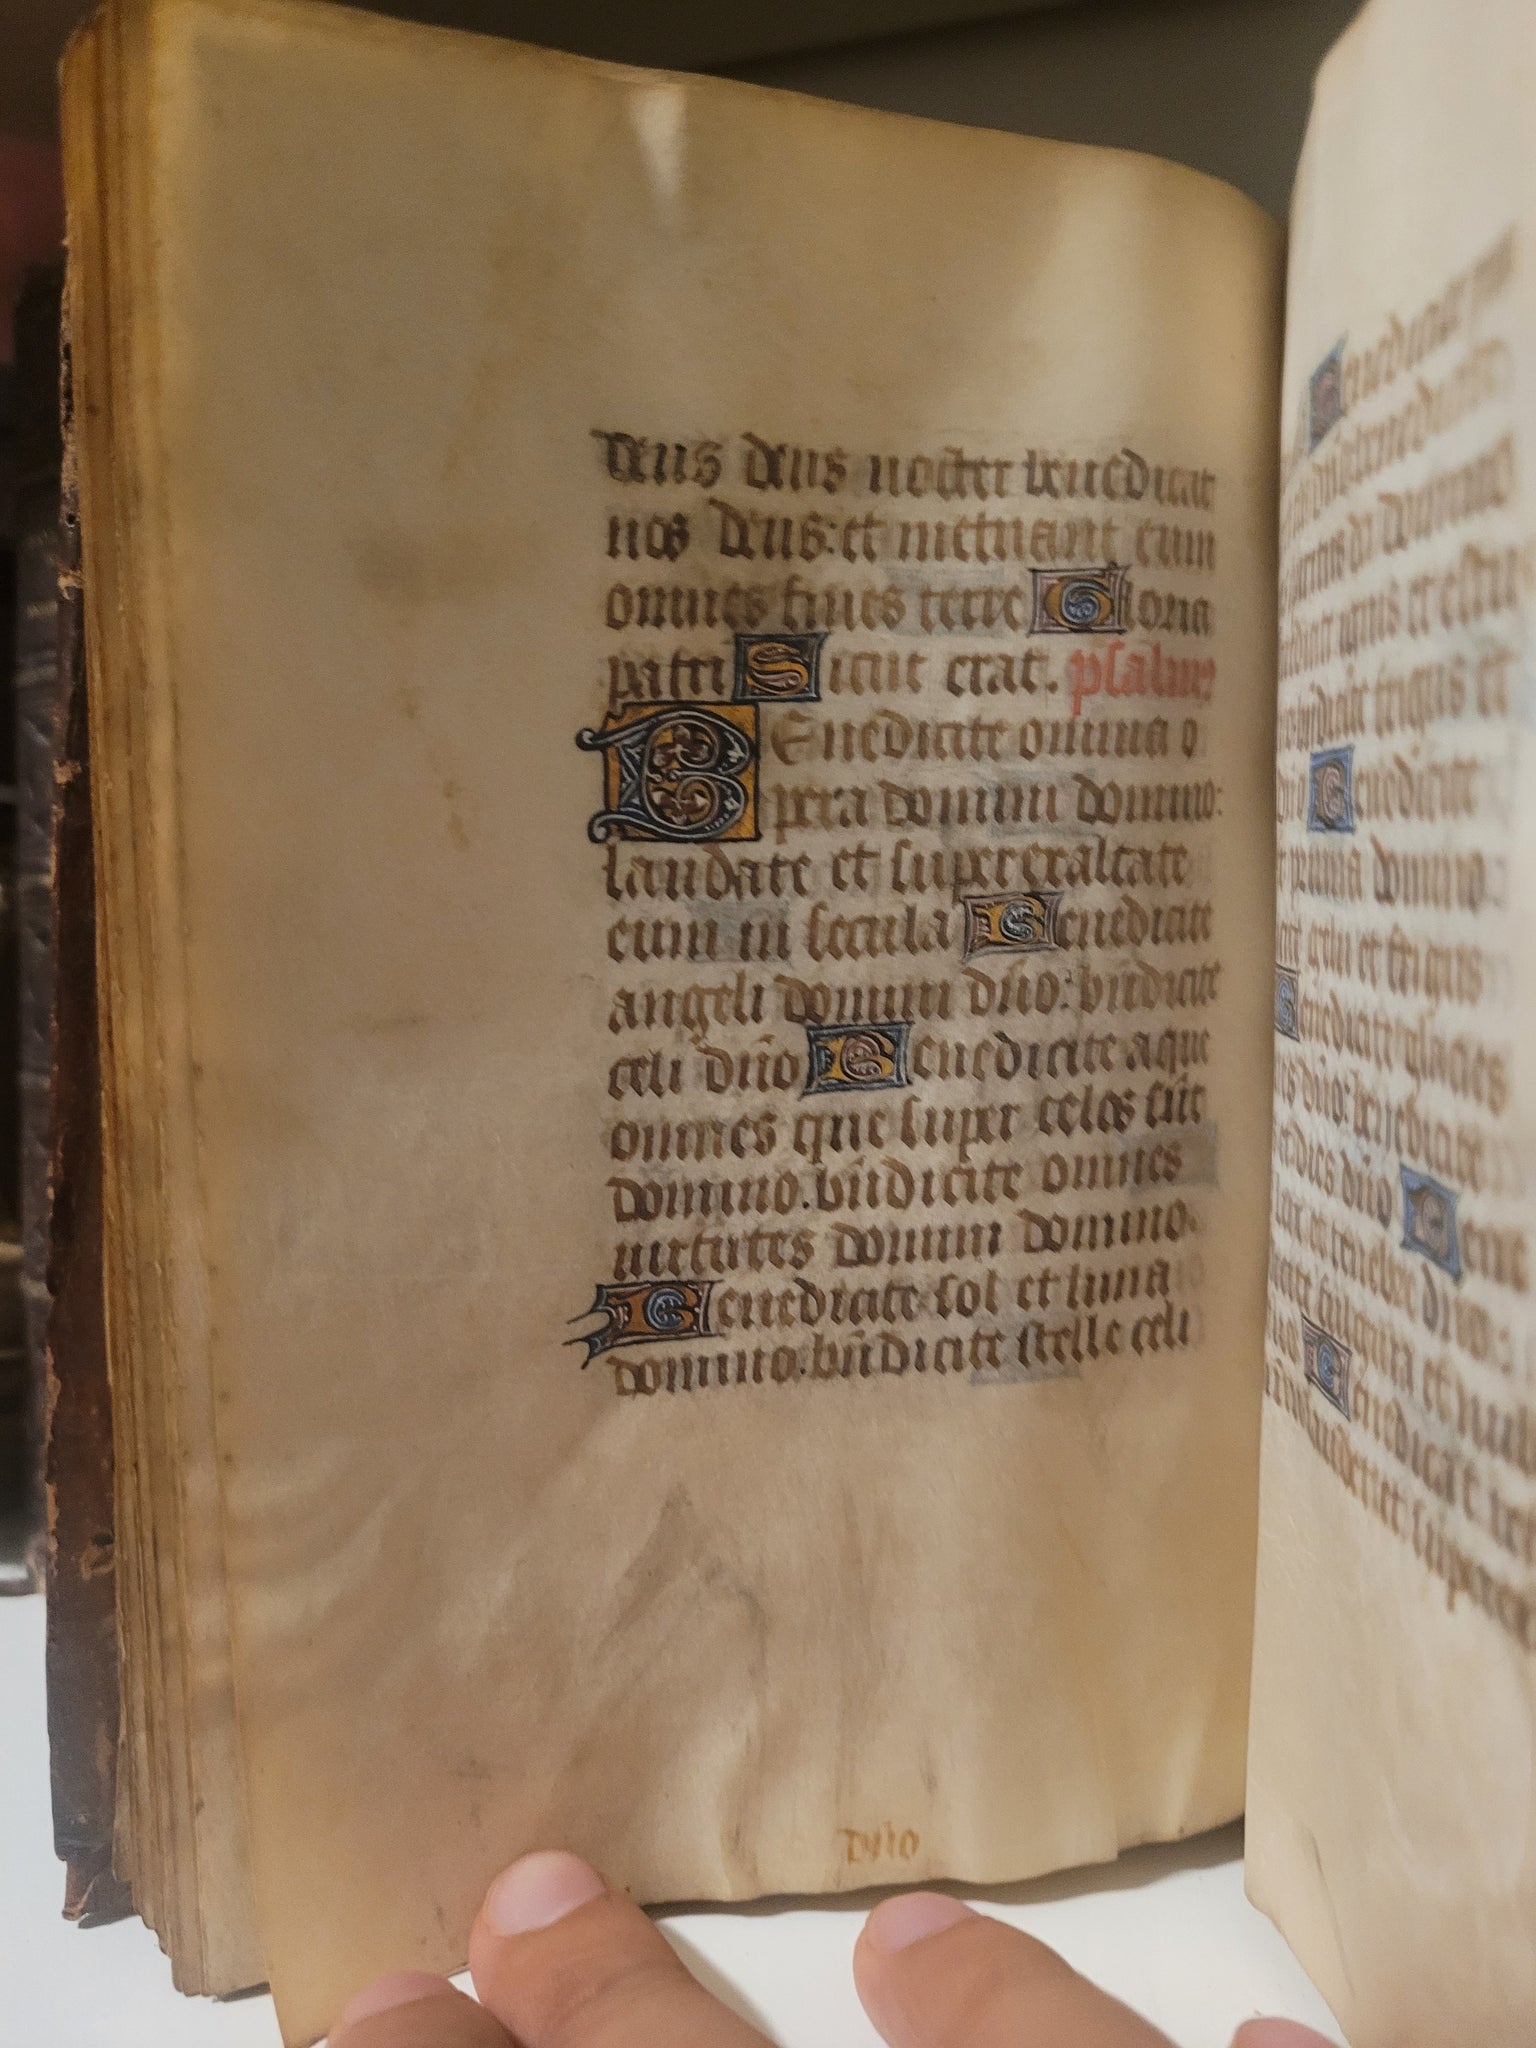 deus deus noster benedicat
nos deus: et metuant eum
omnes fines terre Gloria
patri Sicut erat. psalmꝯ
Benedicite omnia o
pera domini domino:
laudate et superexaltate
eum in secula Benedicite
angeli domini dn̄o: bn̄dicite
celi dn̄o Benedicite aque
omnes que super celos sūt
domino. bn̄dicite omnes
uirtutes domini domino.
Benedicite sol et luna
domino. bn̄dicite stelle celi
dn̄o
Benedicite
ignis et estus
frigus et
dn̄o Benedicite
et pruina domino:
gelu et frigus
Benedicite glacies
dn̄o: benedicite
et dies dn̄o Bene
lux et tenebre dn̄o:
fulgura et nub
dn̄o Benedicat ter
laudet et superex